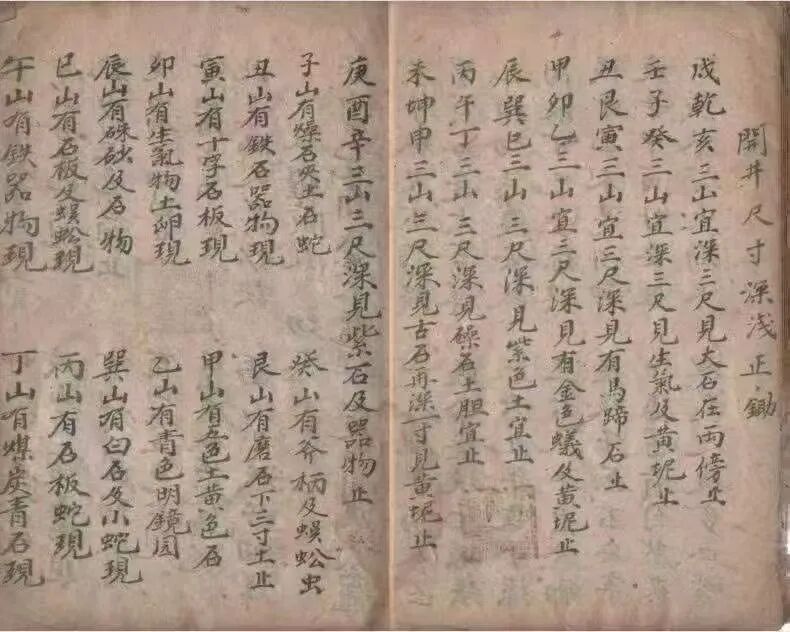 開井尺寸深浅正鋤
戌乾亥三山宜深三尺見大石在両傍止
壬子癸三山宜深三尺見生氣及黄坭止
丑艮寅三山宜三尺深見有馬蹄石止
甲卯乙三山宜三尺深見有金色蟻及黄坭止
辰巽巳三山三尺深見紫色土宜止
丙午丁三山三尺深見礤石土胆宜止
未坤甲三山三尺深見古石再深一寸見黄坭止
庚酉辛三山三尺深見紫石及器物止
子山有燥石土石蛇
癸山有斧柄及蜈蚣虫
丑山有鉄石器物現
艮山有磨石下三寸土止
寅山有十字石板現
甲山有各色土黄色石
卯山有生氣物土卵現
乙山有青色明鏡园
辰山有硃砂及石物
巽山有白石及小蛇現
巳山有石板及蜈蚣現
丙山有石板蛇現
午山有鉄器物現
丁山有煤炭青石現